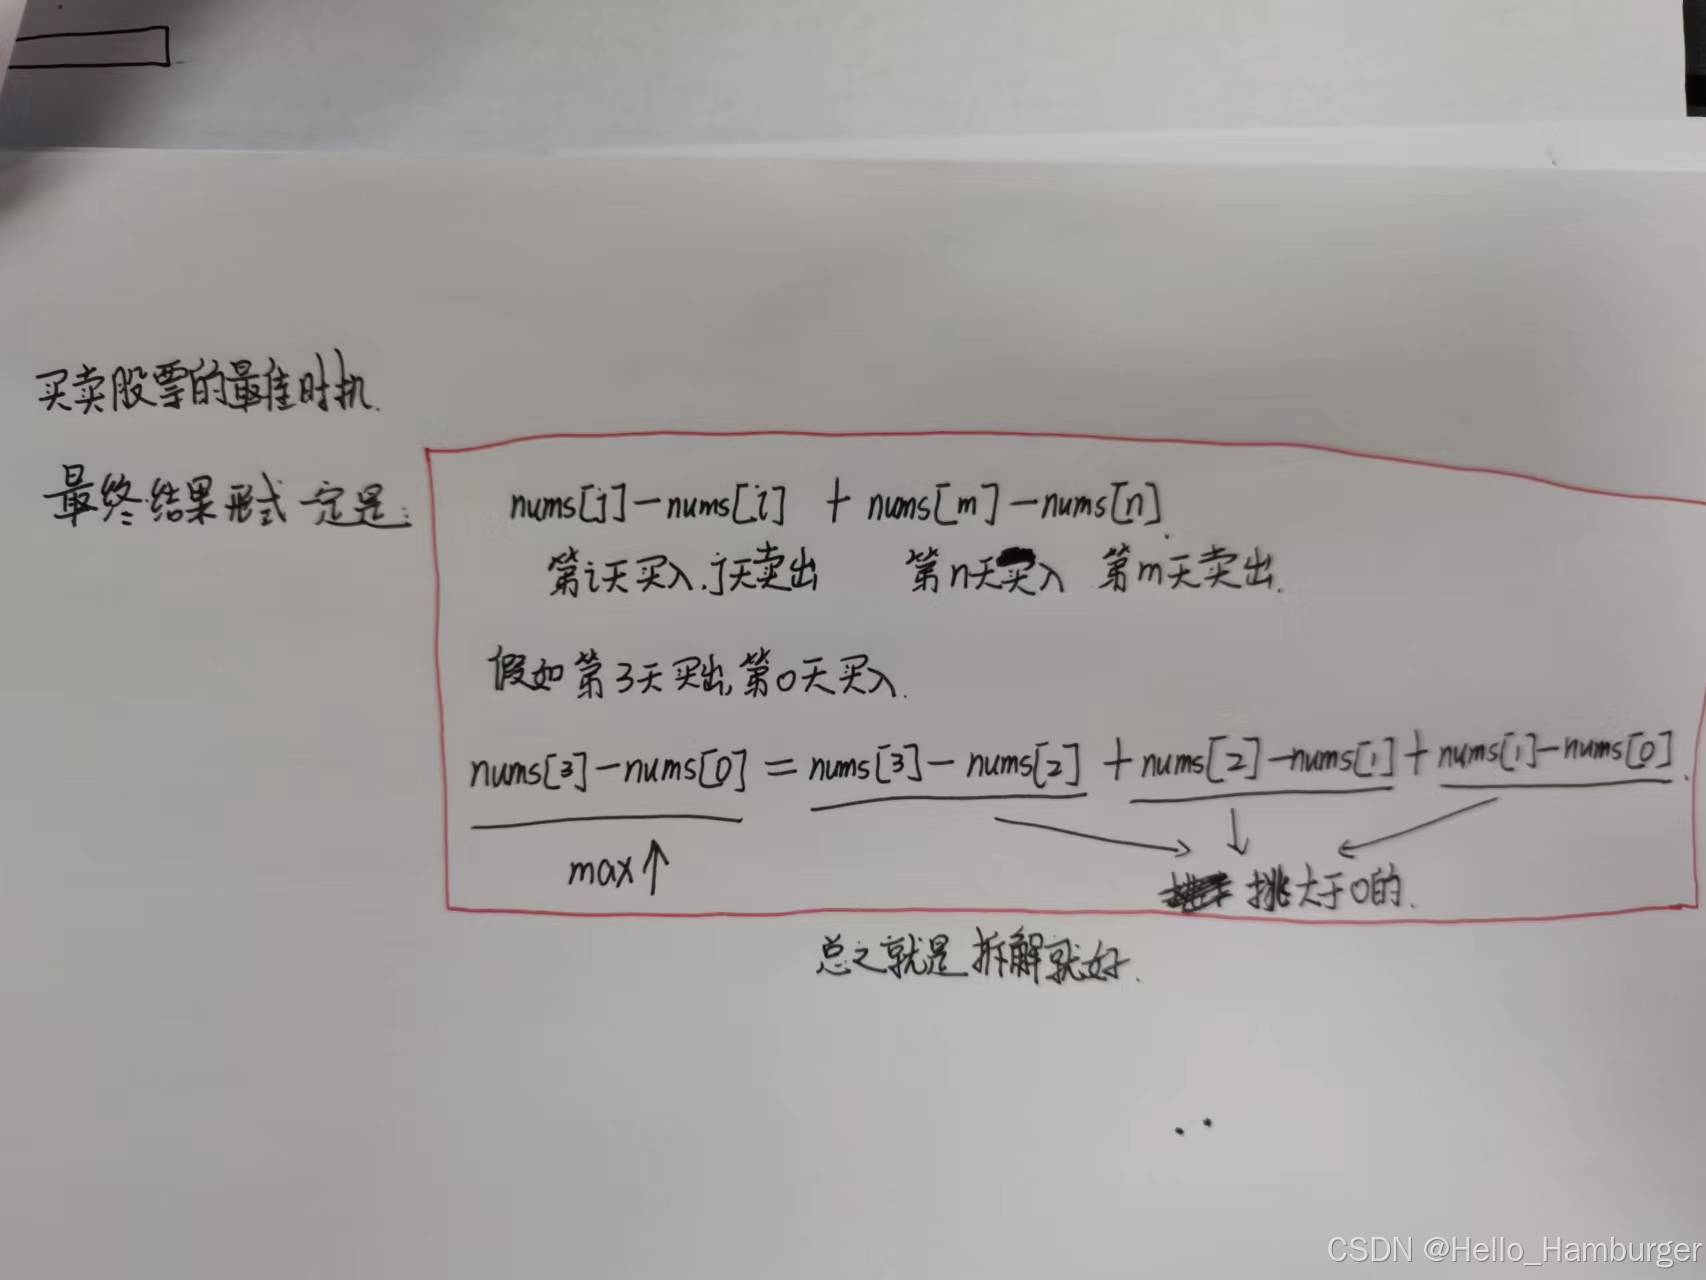 买卖股票的最佳时机.
最终结果形式一定是:
nums[j]-nums[i] + nums[m]-nums[n].
第i天买入.j天卖出 第n天买入 第m天卖出.
假如第3天买出,第0天买入.
nums[3]-nums[0]=nums[3]-nums[2]+nums[2]-nums[1]+nums[1]-nums[0].
max↑
挑大于0的.
总之就是拆解就好.
CSDN @Hello_Hamburger